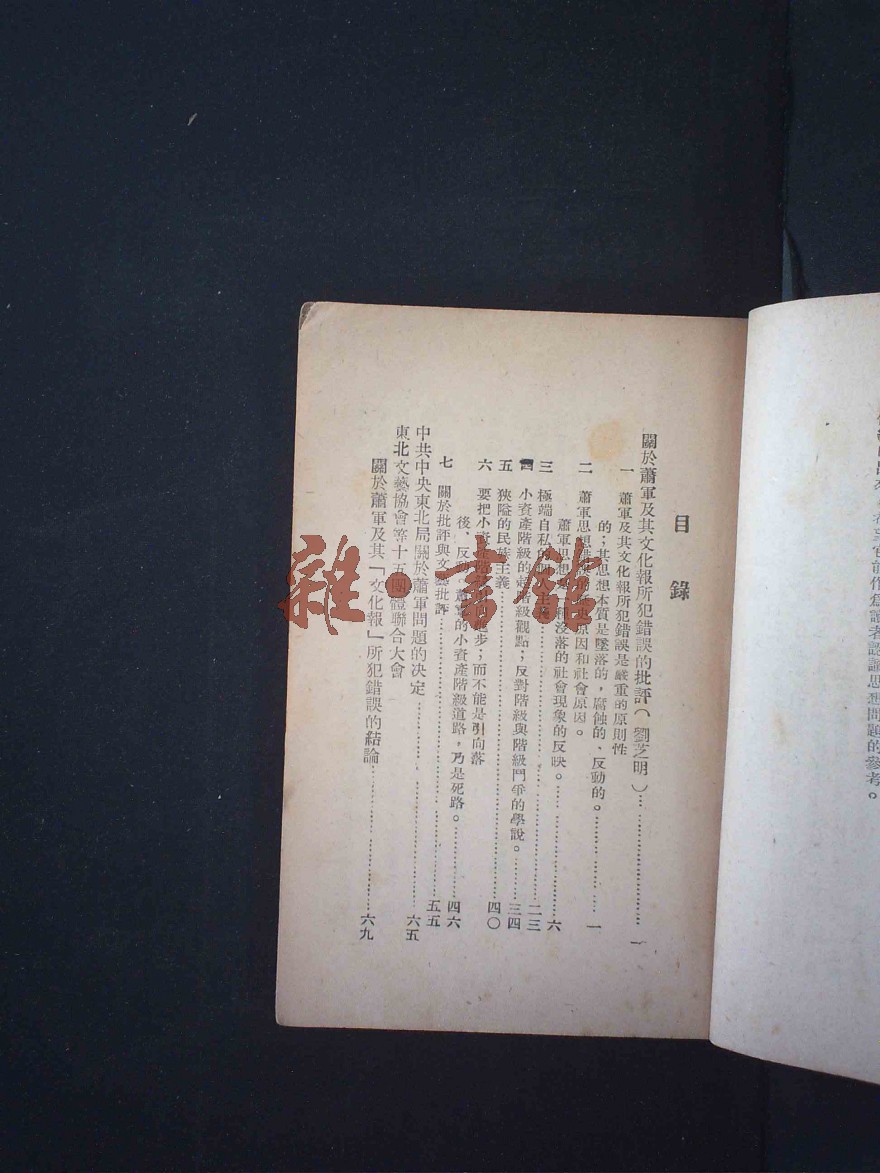 目錄
關於蕭軍及其文化報所犯錯誤的批評（劉芝明）…一
一 蕭軍及其文化報所犯錯誤是嚴重的原則性
的；其思想本質是墜落的，腐蝕的、反動的。…一
二 蕭軍思想 原因和社會原因。
蕭軍思想 沒落的社會現象的反映。…六
三 極端自私的 …二三
四 小資產階級的 階級觀點；反對階級與階級鬥爭的學說。…三四
五 狹隘的民族主義…四〇
六 要把小資產階級 進步；而不能是引向落
後、反動 蕭軍的小資產階級道路，乃是死路。…四六
七 關於批評與文藝批評…五五
中共中央東北局關於蕭軍問題的決定…六五
東北文藝協會等十五團體聯合大會
關於蕭軍及其「文化報」所犯錯誤的結論…六九
作爲讀者認識思想問題的參考。
雜·書館